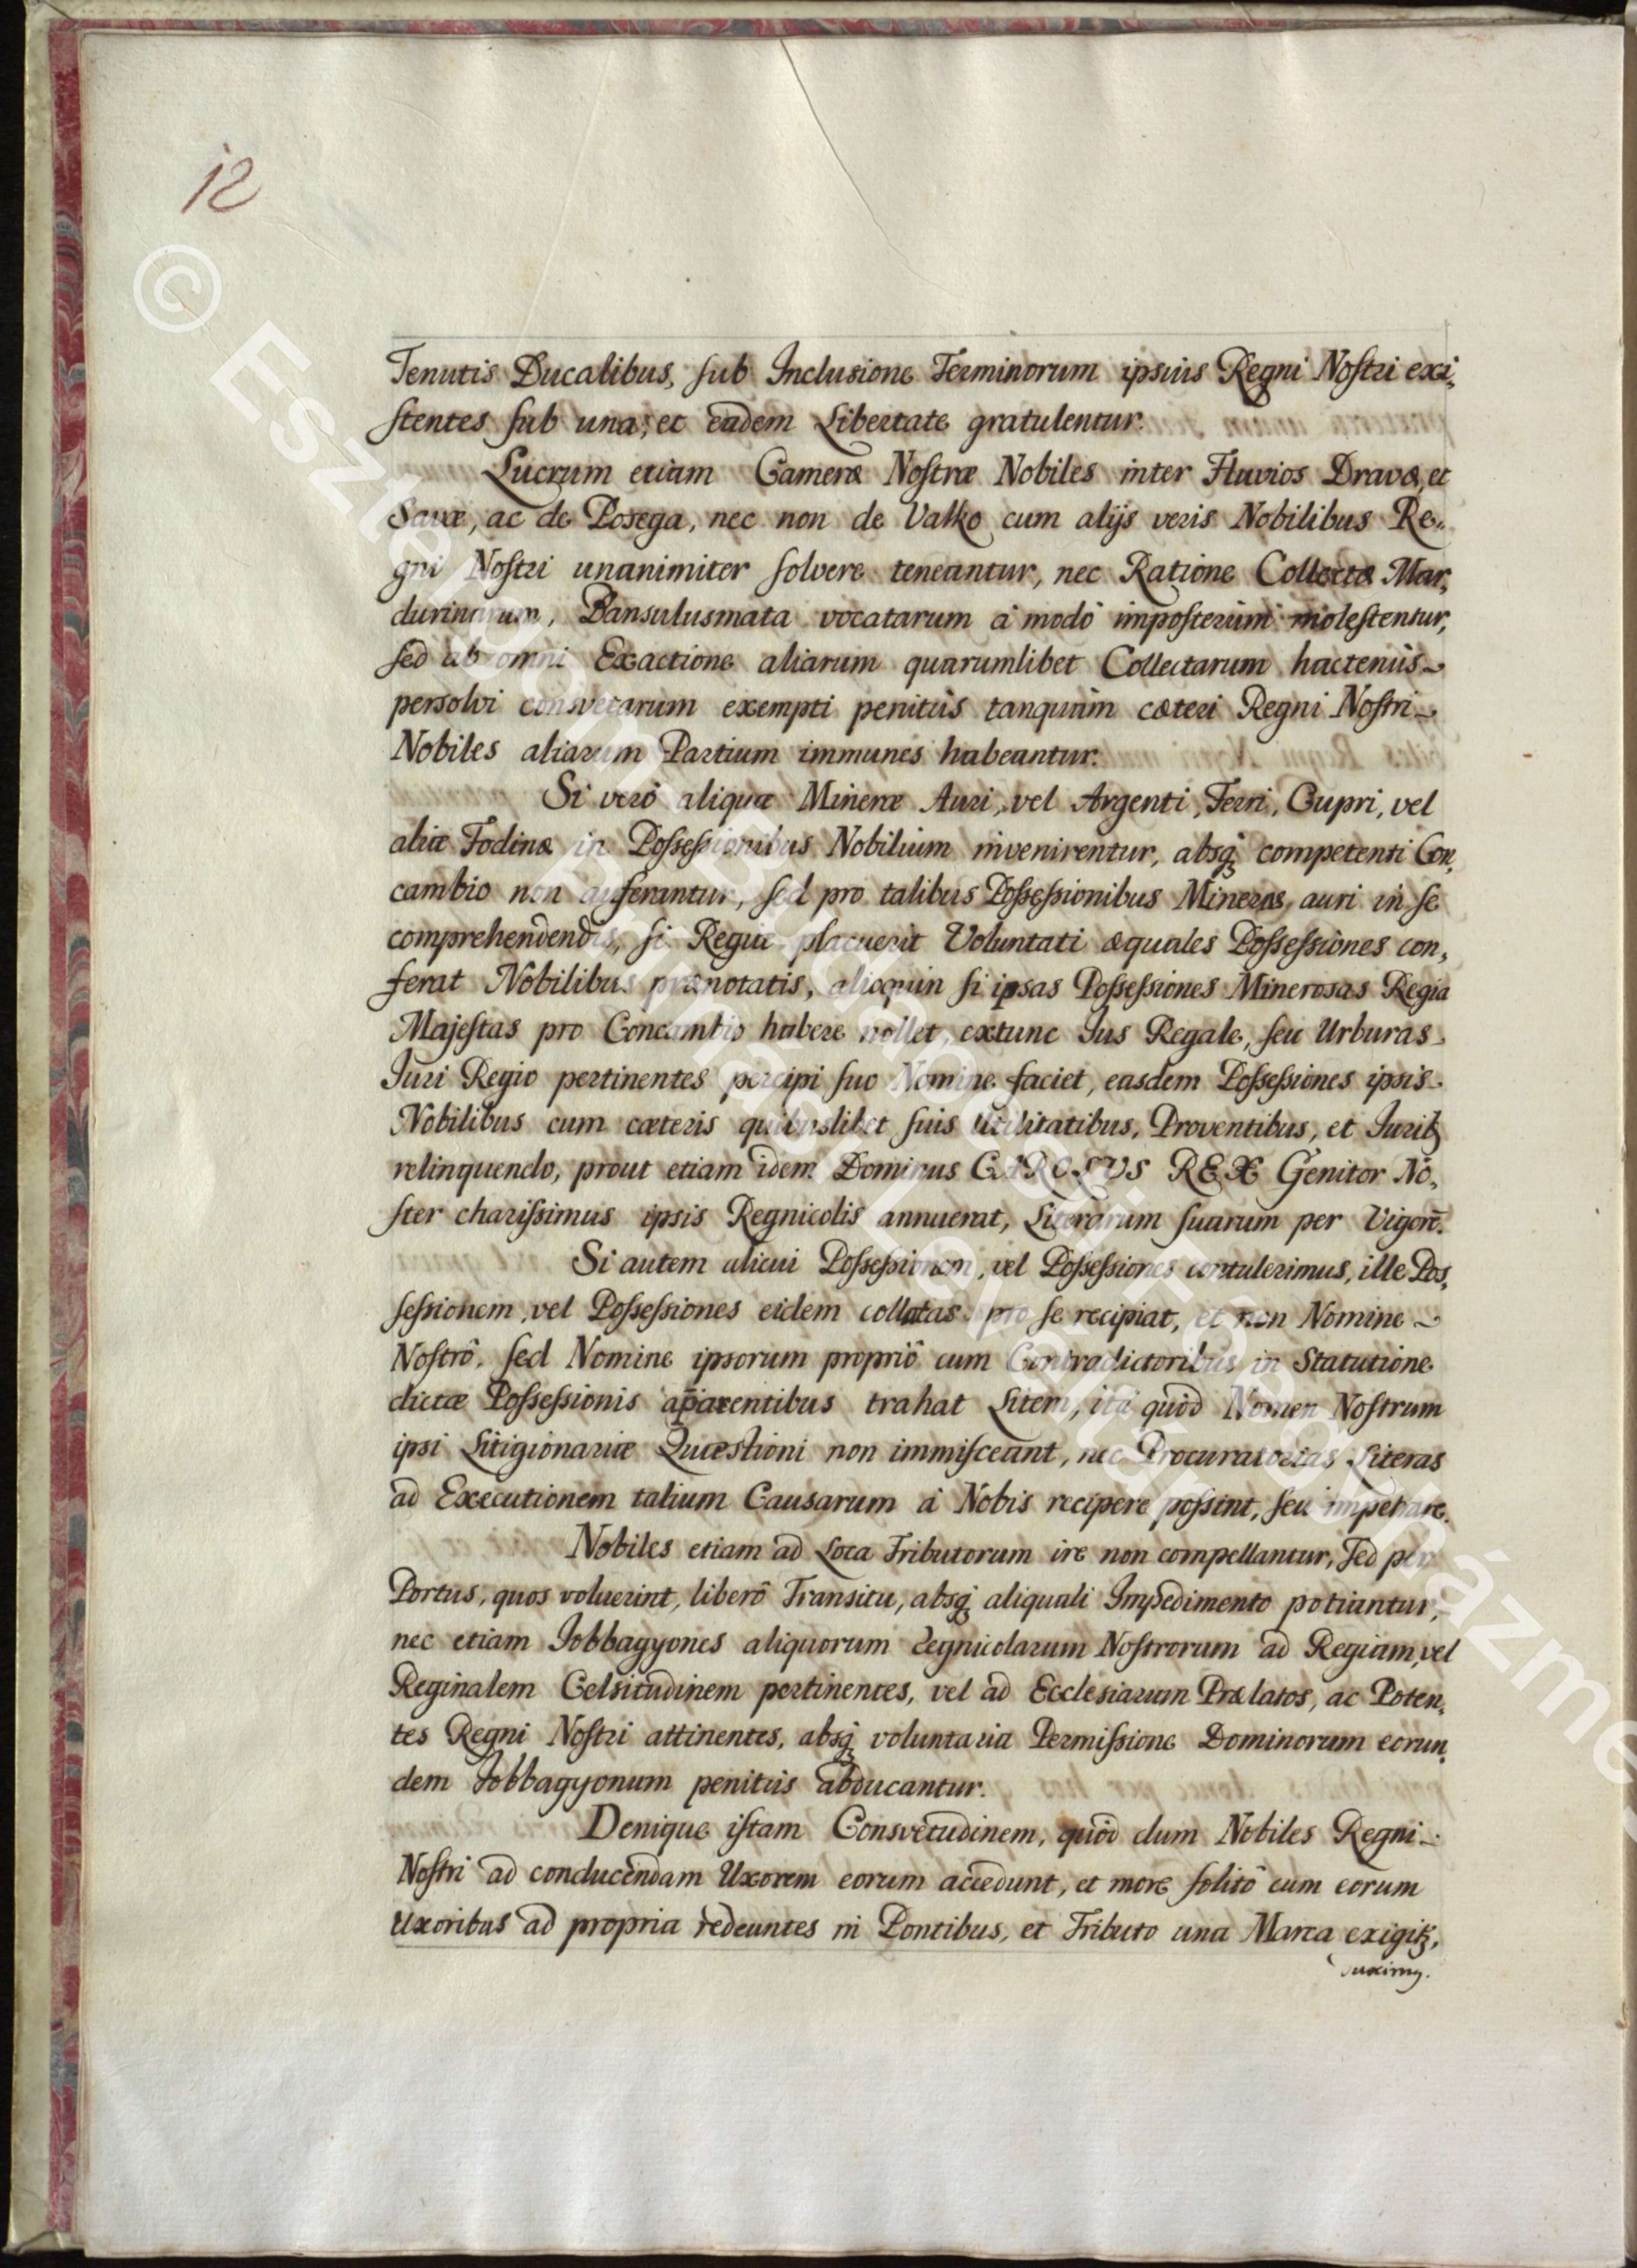 12
Tenutis Ducalibus, sub Inclusione Terminorum ipsius Regni Nostri exi,
stentes sub una, et eâdem Libertate gratulentur.
Lucrum etiam Cameræ Nostræ Nobiles inter Fluvios Dravæ, et
Savæ, ac de Posega, nec non de Valko cum alijs veris Nobilibus Re,,
gni Nostri unanimiter solvere teneantur, nec Ratione Collectæ Mar,
durinarum, Bansulusmata vocatarum à modò imposterùm molestentur,
sed ab omni Exactione aliarum quarumlibet Collectarum hactenùs
persolvi consvetarum exempti penitùs tanquàm cæteri Regni Nostri
Nobiles aliarum Partium immunes habeantur.
Si verò aliquæ Mineræ Auri, vel Argenti, Ferri, Cupri, vel
aliæ Fodinæ in Possessionibus Nobilium invenirentur, absq́ competenti Con,
cambio non auferantur, sed pro talibus Possessionibus Mineras auri in se
comprehendendis, si Regiæ placuerit Voluntati æquales Possessiones con,
ferat Nobilibus prænotatis, alioquin si ipsas Possessiones Minerosas Regia
Majestas pro Concambio habere nollet, extunc Jus Regale, seu Urburas
Juri Regio pertinentes percipi suo Nomine faciet, easdem Possessiones ipsis
Nobilibus cum cæteris quibuslibet suis Utilitatibus, Proventibus, et Jurib₉
relinquendo, prout etiam idem Dominus CAROLVS REX Genitor No,
ster charissimus ipsis Regnicolis annuerat, Literarum suarum per Vigorē.
Si autem alicui Possessionem, vel Possessiones contulerimus, ille Pos,
sessionem, vel Possessiones eidem collatas pro se recipiat, et non Nomine
Nostrô, sed Nomine ipsorum propriô cum Contradictoribus in Statutione
dictæ Possessionis ap̄arentibus trahat Litem, ità quòd Nomen Nostrum
ipsi Litigionariæ Quæstioni non immisceant, nec Procuratorias Literas
ad Executionem talium Causarum à Nobis recipere possint, seu impetrare.
Nobiles etiam ad Loca Tributorum ire non compellantur, sed per
Portus, quos voluerint, liberô Transitu, absq́ aliquali Impedimento potiantur,
nec etiam Jobbagyones aliquorum Regnicolarum Nostrorum ad Regiam, vel
Reginalem Celsitudinem pertinentes, vel ad Ecclesiarum Prælatos, ac Poten,
tes Regni Nostri attinentes, absq́ voluntaria Permissione Dominorum eorun,
dem Jobbagyonum penitùs abducantur.
Denique istam Consvetudinem, quòd dum Nobiles Regni
Nostri ad conducendam Uxorem eorum accedunt, et more solitô cum eorum
Uxoribus ad propria redeuntes in Pontibus, et Tributo una Marca exigit₉,
duximꝰ.